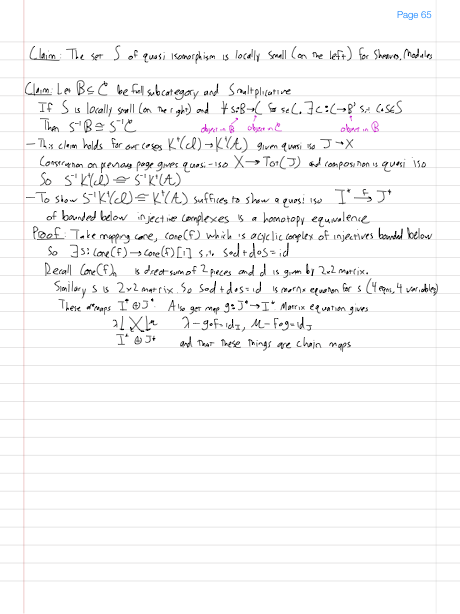 Page 65
Claim: The set S of quasi isomorphism is locally small (on the left) for Sheaves, Modules
Claim: Let B ⊆ C be full subcategory and S multiplicative
If S is locally small (on the right) and ∀ s:B→C s∈C, ∃ c:C→B' s.t. C∘S∈S
Then S⁻¹B ≅ S⁻¹C object in B object in C object in B
– This claim holds for our cases K⁺(cl) → K⁺(A) given quasi iso J → X
Construction on previous page gives quasi-iso X → Tot(J) and composition is quasi iso
So S⁻¹K⁺(cl) ≅ S⁻¹K⁺(A)
– To show S⁻¹K⁺(cl) ≅ K⁺(A) suffices to show a quasi iso I⁺ →F J⁺
of bounded below injective complexes is a homotopy equivalence
Proof: Take mapping cone, cone(f) which is acyclic complex of injectives bounded below
So ∃ s: cone(f) → cone(f)[1] s.t. s∘d + d∘s = id
Recall Cone(f)ₙ is direct sum of 2 pieces and d is given by 2×2 matrix.
Similarly s is 2×2 matrix. So s∘d + d∘s = id is matrix equation for s (4 eqns, 4 variables)
These are maps I⁺ ⊕ J⁺. Also get map g: J⁺ → I⁺ Matrix equation gives
λ↓ ╳ ↓μ λ – g∘f = id_I, μ – f∘g = id_J
I⁺ ⊕ J⁺ and that these things are chain maps